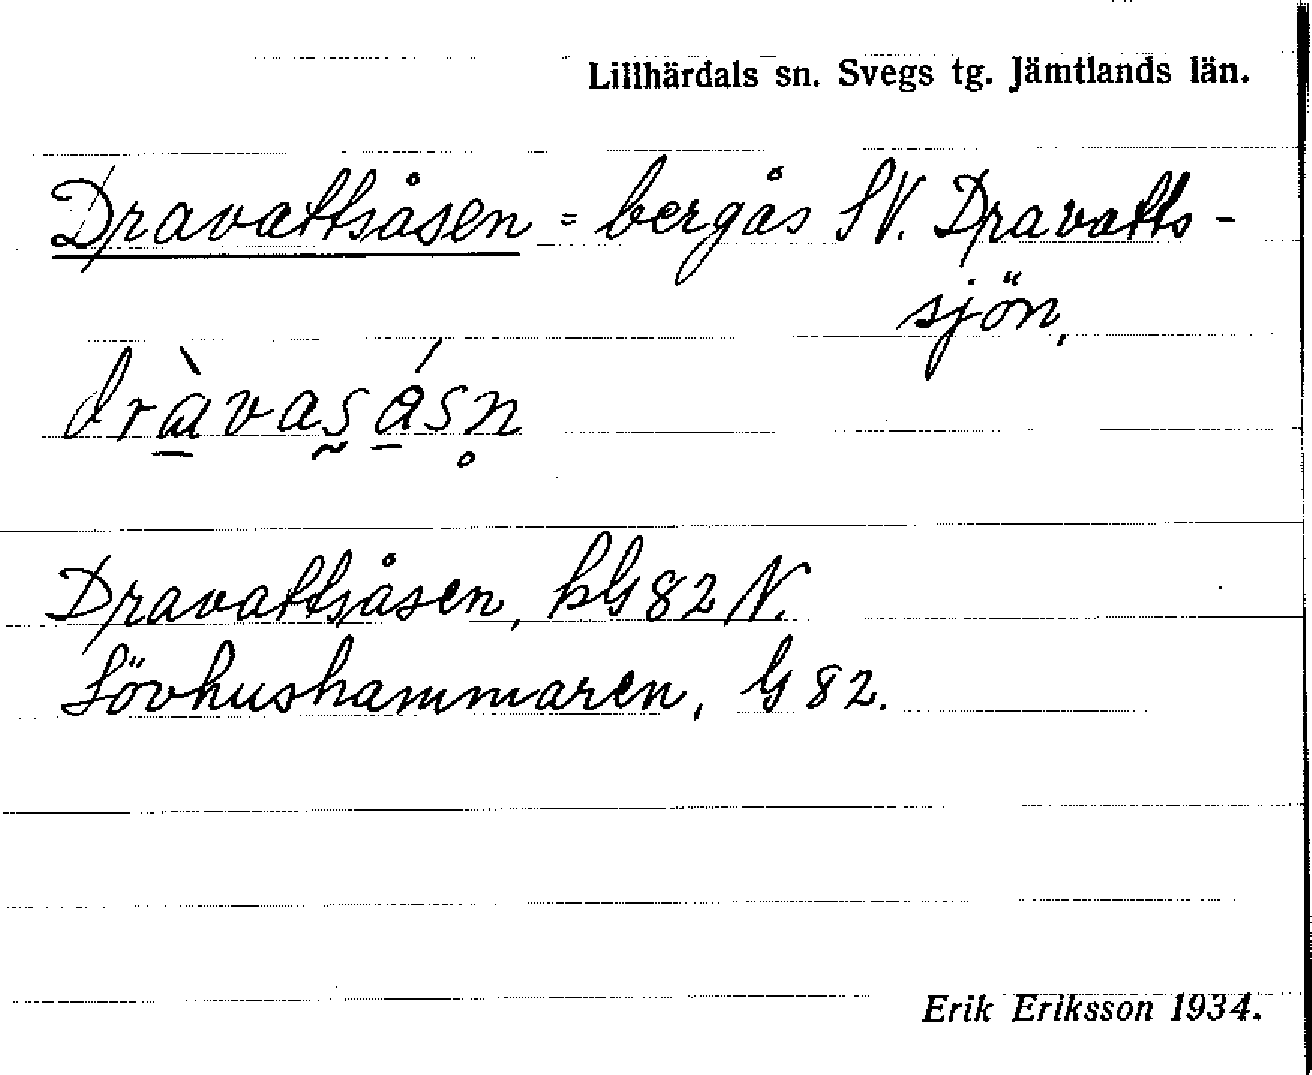 Lillhärdals sn. Svegs tg. Jämtlands län.
Dravattsåsen = bergås SV. Dravatts-
sjön.
dràvasåsn
Dravattsåsen, hG82 N.
Lövhushammaren, G 82.
Erik Eriksson 1934.